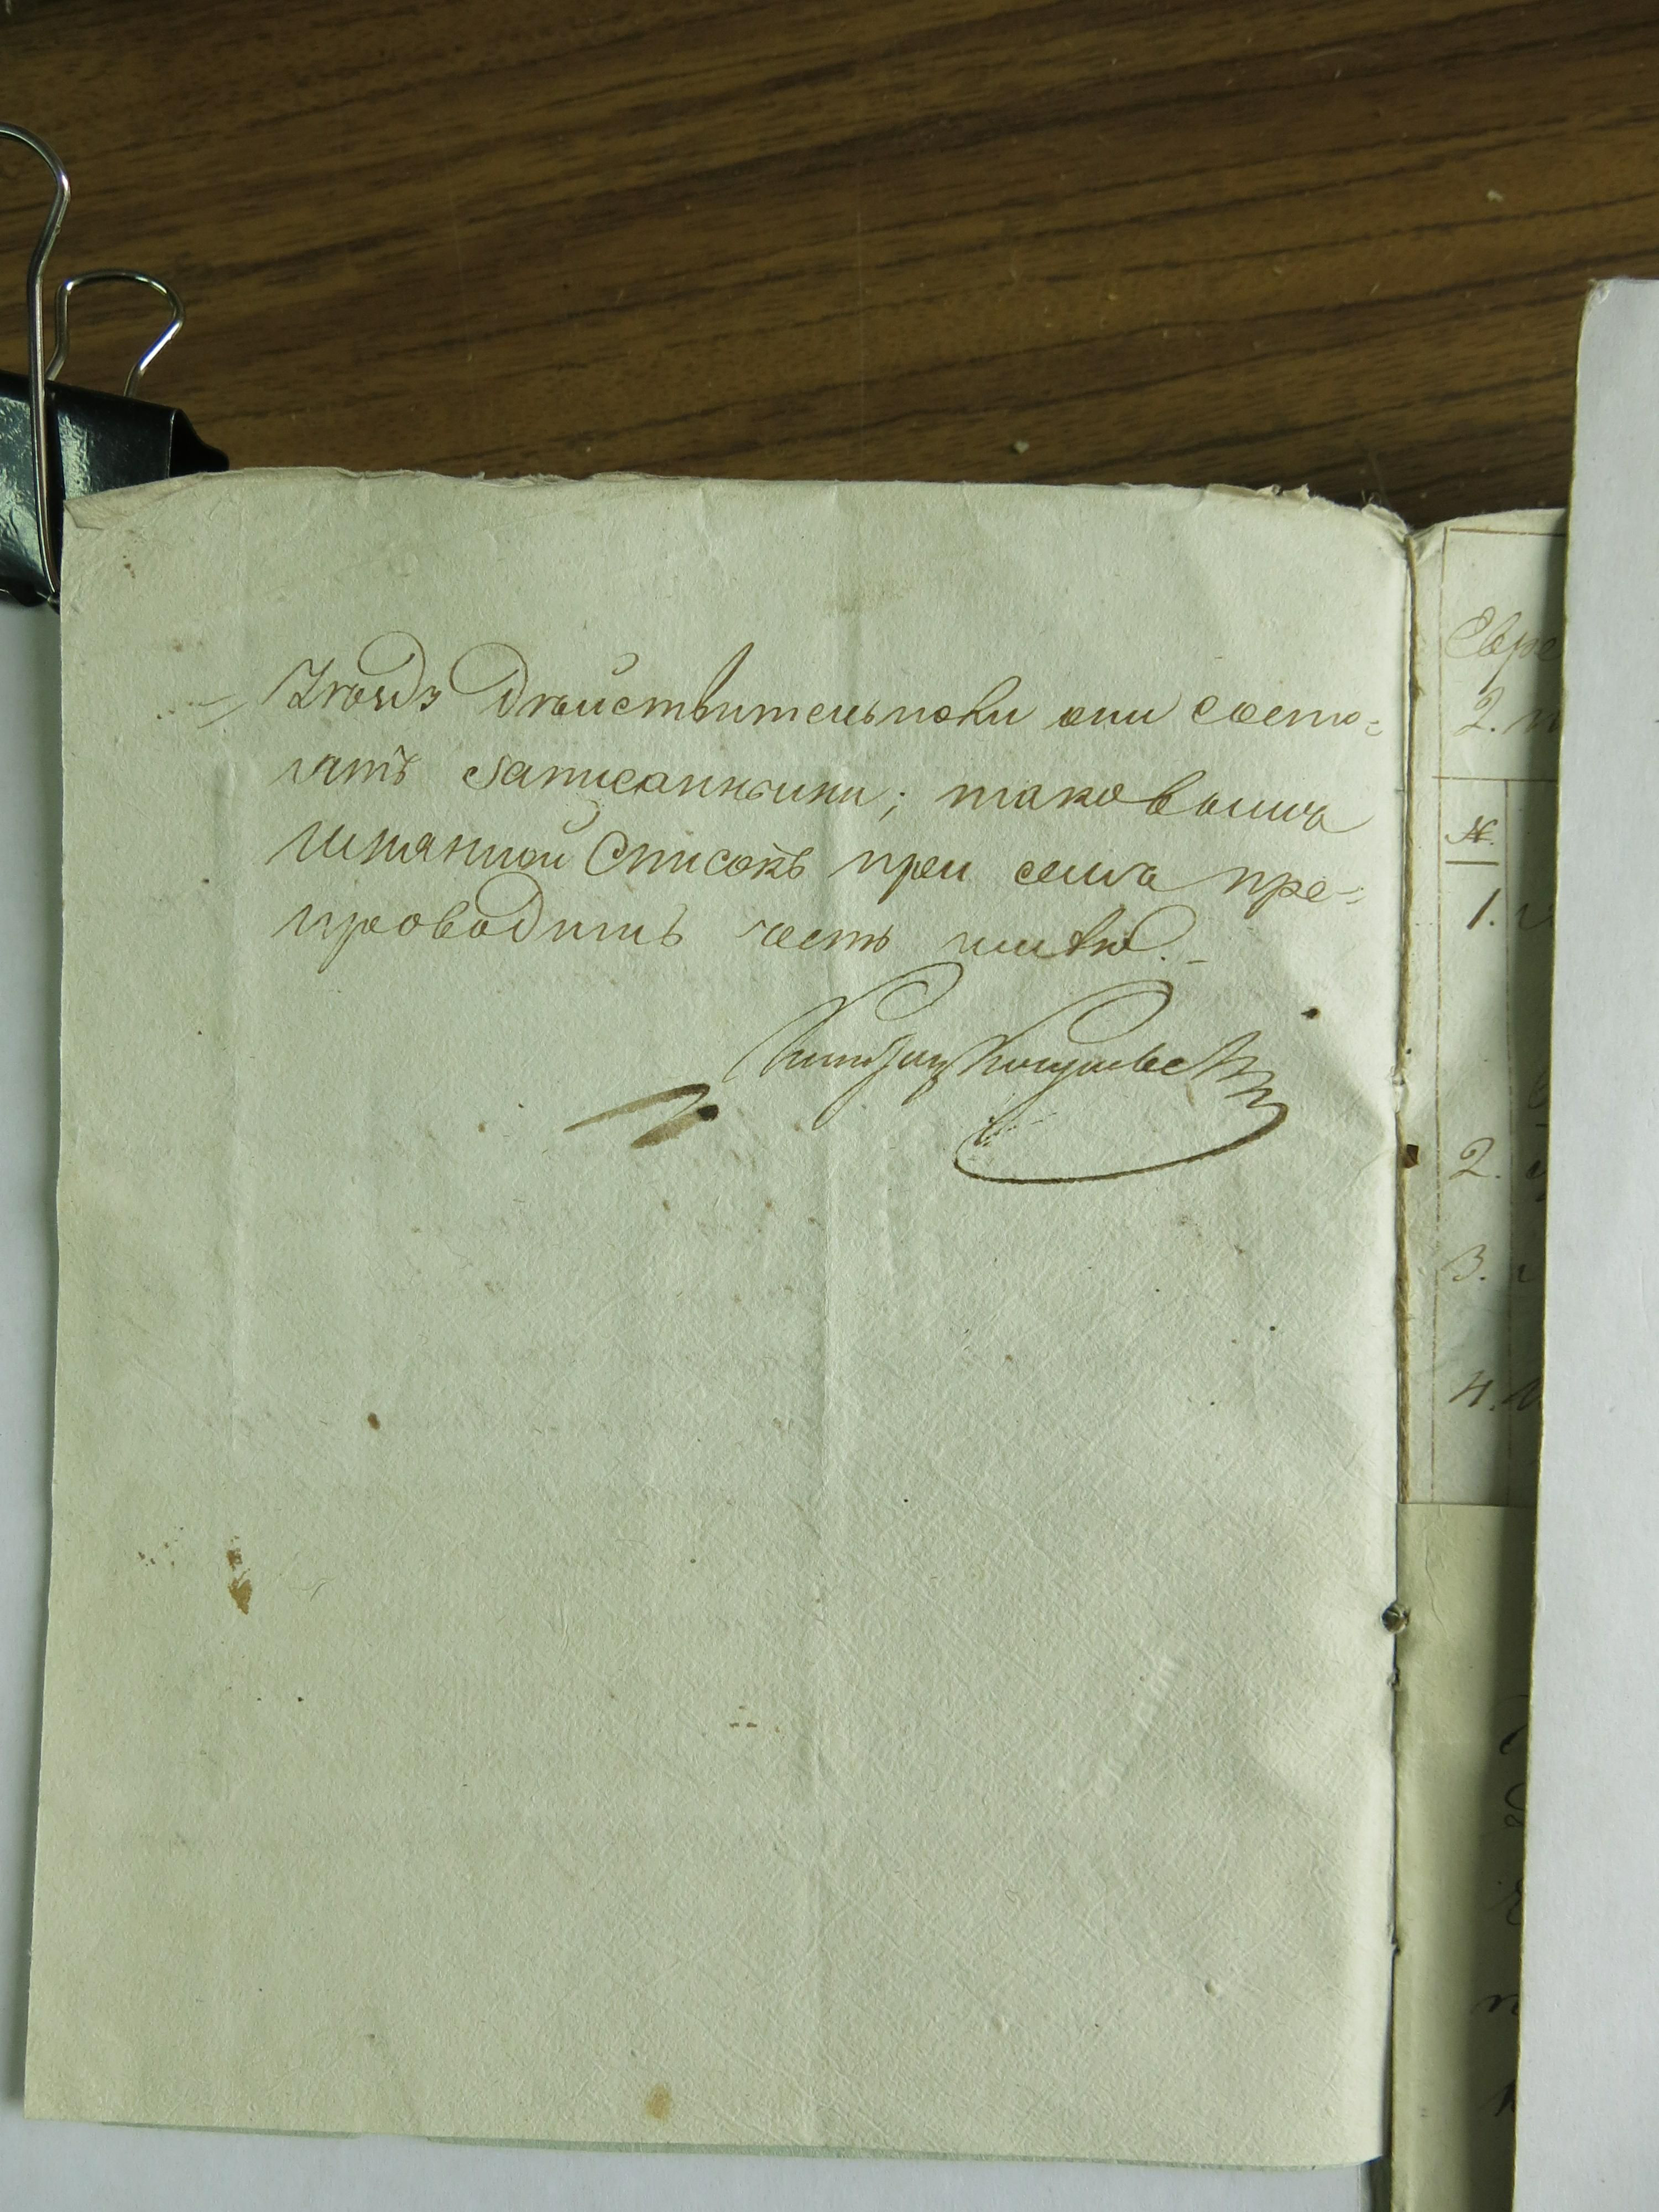 дѣйствительноли они состо=
ятъ записанными; таковыи
имянной Списокъ при семъ пре=
проводить честь имѣю.
Евре
2.
№.
1.
2.
3.
4.